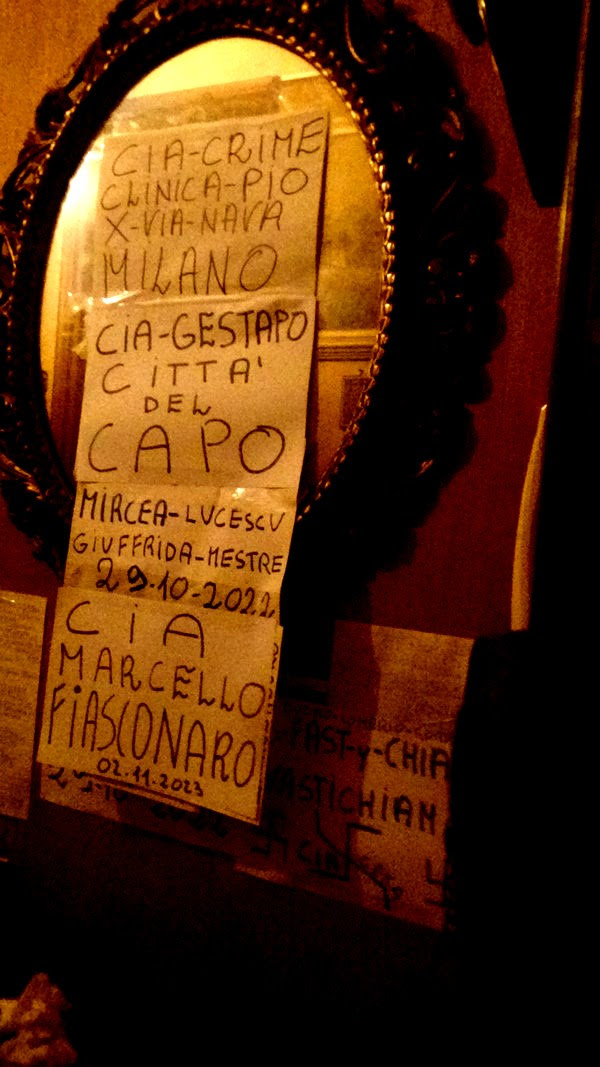 CIA-CRIME
CLINICA-PIO
X-VIA-NAVA
MILANO
CIA-GESTAPO
CITTA'
DEL
CAPO
MIRCEA-LUCESCU
GIUFFRIDA-MESTRE
29-10-2022
CIA
MARCELLO
FIASCONARO
02.11.2023
FAST-y-CHIA
ASTICHIAN
CIA